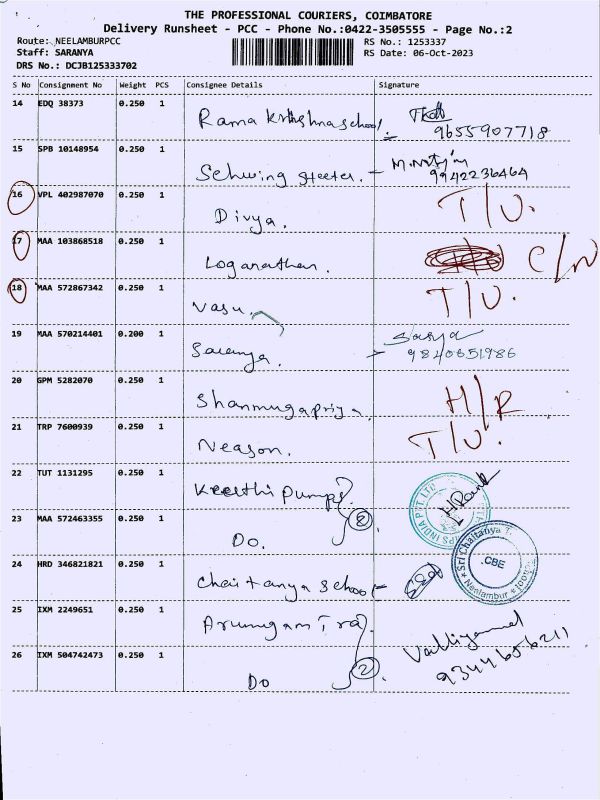 THE PROFESSIONAL COURIERS, COIMBATORE
Delivery Runsheet - PCC - Phone No.:0422-3505555 - Page No.:2
Route: NEELAMBURPCC
RS No.: 1253337
Staff: SARANYA
RS Date: 06-Oct-2023
DRS No.: DCJB125333702
S No Consignment No Weight PCS Consignee Details Signature
14 EDQ 38373 0.250 1 Rama Krishna school
9655907718
15 SPB 10148954 0.250 1 Schwing Stetter.
9942236464
16 VPL 402987070 0.250 1 Divya. T/U.
17 MAA 103868518 0.250 1 Loganathan. C/N
18 MAA 572867342 0.250 1 Vasu. T/U.
19 MAA 570214401 0.200 1 Saranya. Sarya
9840651986
20 GPM 5282070 0.250 1 Shanmugapriya. H/R
21 TRP 7600939 0.250 1 Neason. T/U.
22 TUT 1131295 0.250 1 Keerthi Pumps
INDIA PVT. LTD
2
23 MAA 572463355 0.250 1 Do.
24 HRD 346821821 0.250 1 Chaitanya School
Sri Chaitanya
CBE
Neelambur
25 IXM 2249651 0.250 1 Arumugam Traj
Valliyammal
9344656211
2
26 IXM 504742473 0.250 1 Do